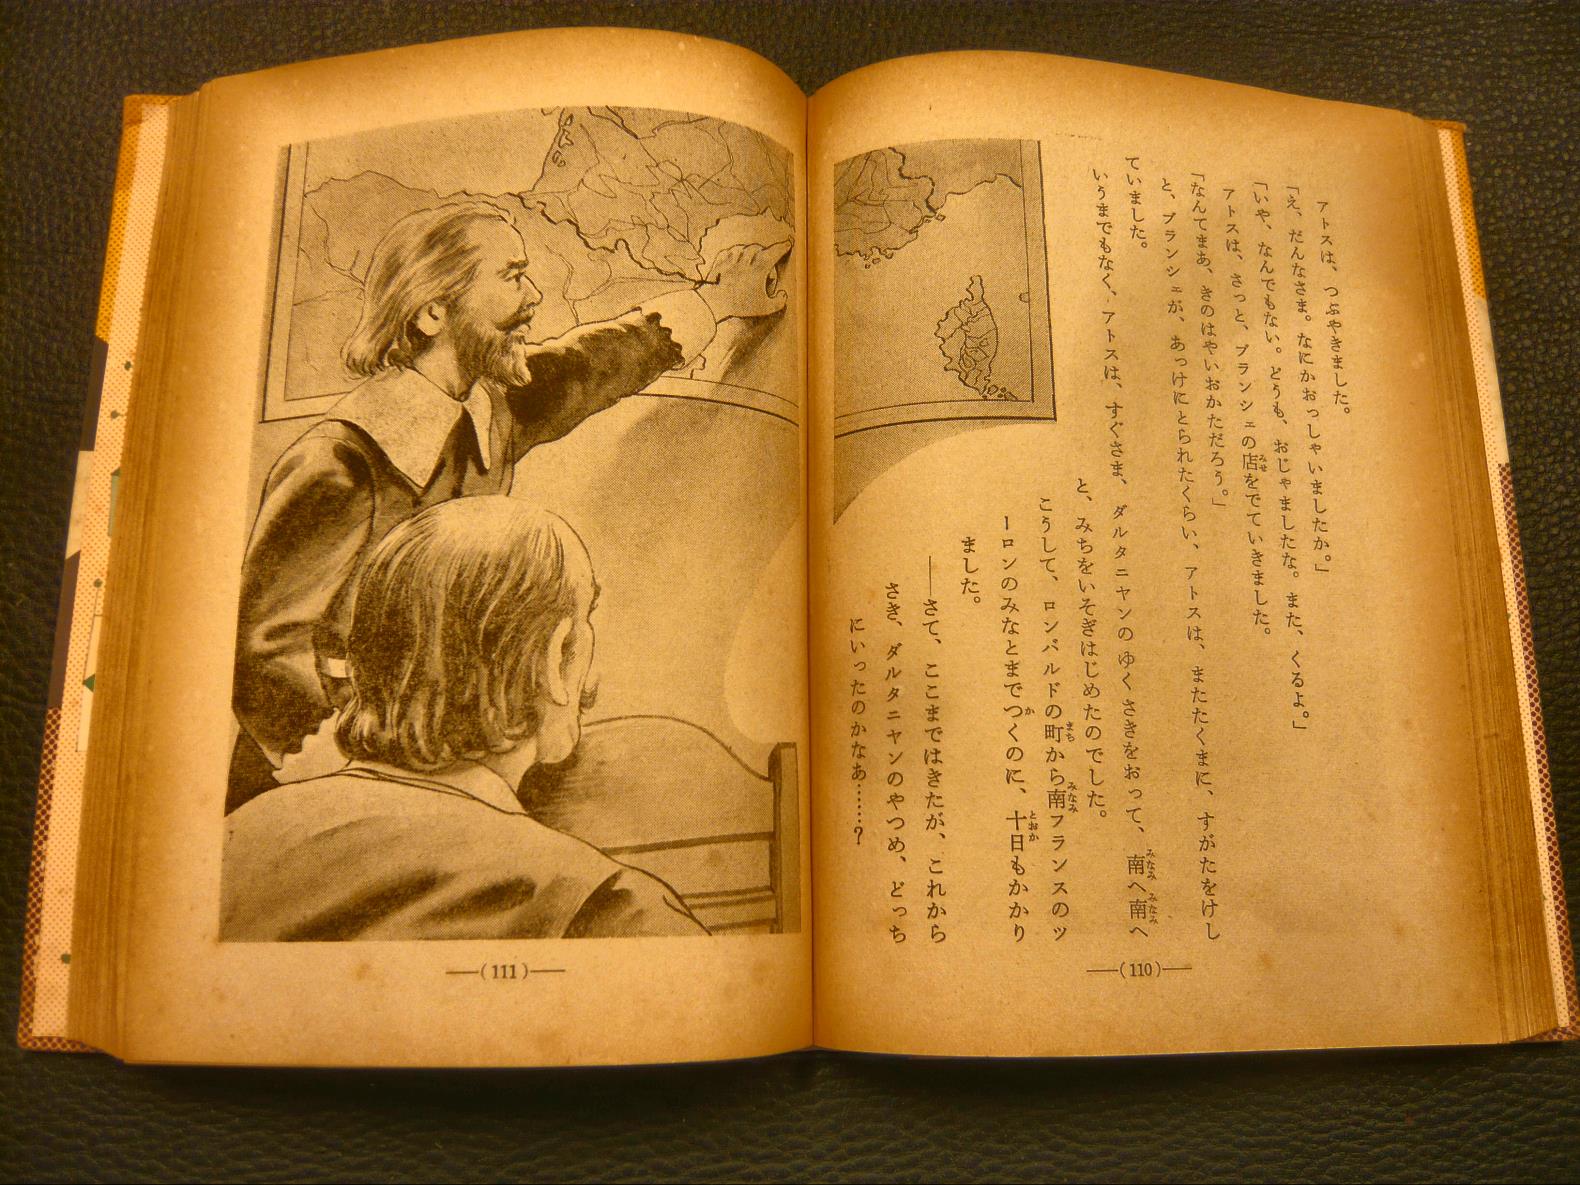 アトスは、つぶやきました。
「え、だんなさま。なにかおっしゃいましたか。」
「いや、なんでもない。どうも、おじゃましたな。また、くるよ。」
アトスは、さっと、プランシェの店をでていきました。
「なんてまあ、きのはやいおかただろう。」
と、プランシェが、あっけにとられたくらい、アトスは、またたくまに、すがたをけし
ていました。
いうまでもなく、アトスは、すぐさま、ダルタニャンのゆくさきをおって、南へ南へ
と、みちをいそぎはじめたのでした。
こうして、ロンバルドの町から南フランスのツ
ーロンのみなとまでつくのに、十日もかかり
ました。
――さて、ここまではきたが、これから
さき、ダルタニャンのやつめ、どっち
にいったのかなあ……？
―(110)―
―(111)―